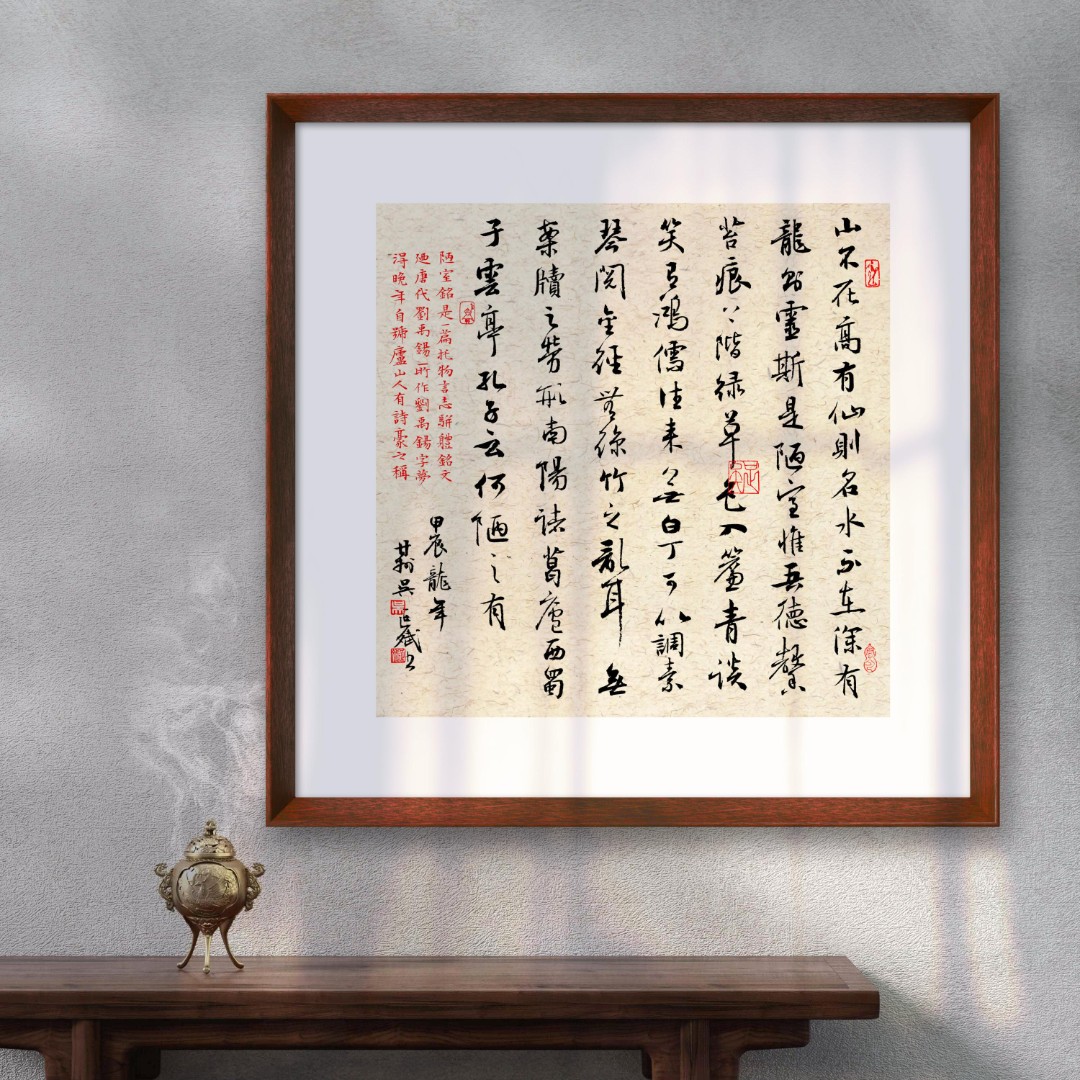 山不在高有仙則名水不在深有
龍則靈斯是陋室惟吾德馨
苔痕上階緑草色入簾青談
笑有鴻儒往來無白丁可以調素
琴閱金經無絲竹之亂耳無
案牘之勞形南陽諸葛廬西蜀
子雲亭孔子云何陋之有
陋室銘是一篇托物言志駢體銘文
廼唐代劉禹錫所作劉禹錫字夢
得晚年自號廬山人有詩豪之稱
甲辰龍年
吳